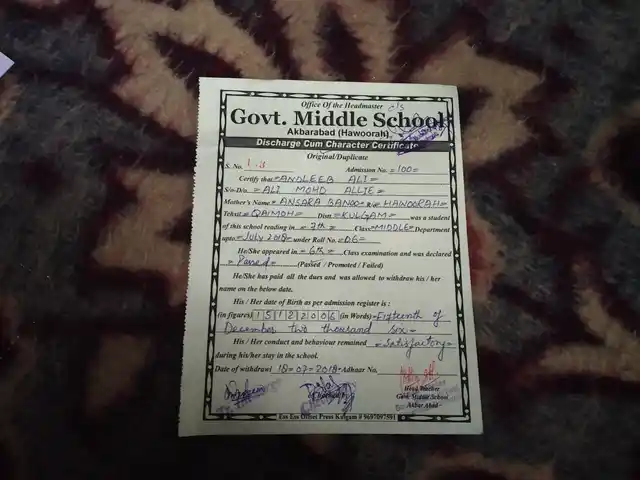 Office Of the Headmaster
Govt. Middle School
Akbarabad (Hawoorah)
Discharge Cum Character Certificate
Original/Duplicate
S. No. 13 Admission No. =100=
Certify that =ANDLEEB ALI=
S/o-D/o. =ALI MOHD ALLIE=
Mother's Name =ANSARA BANOO= R/o =HAWOORAH=
Tehsil =QAIMOH= Distt =KULGAM= was a student
of this school reading in =7th= Class =MIDDLE= Department
upto =July 2018= under Roll No. =06=
He/She appeared in =6th= Class examination and was declared
=Passed= (Passed / Promoted / Failed)
He/She has paid all the dues and was allowed to withdraw his / her
name on the below date.
His / Her date of Birth as per admission register is :
(in figures) 15122006 (in Words) =Fifteenth of
December two thousand six=
His / Her conduct and behaviour remained =Satisfactory=
during his/her stay in the school.
Date of withdrawl 18-07-2018 Adhaar No.
Checked by
Head Teacher
Govt. Middle School
Akbar Abad
Ess Ess Offset Press Kulgam # 9697097591